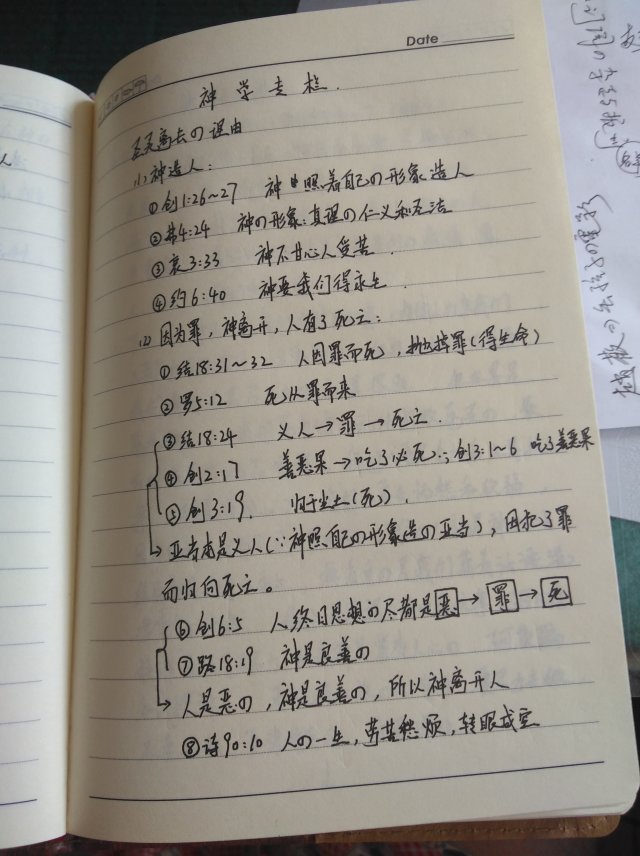 Date
神学专栏
圣灵离去の理由
(1) 神造人:
①创1:26~27 神照着自己の形象造人
②弗4:24 神の形象:真理の仁义和圣洁
③哀3:33 神不甘心人受苦.
④约6:40 神要我们得永生
(2) 因为罪,神离开,人有了死亡:
①结18:31~32 人因罪而死,抛掉罪(得生命)
②罗5:12 死从罪而来
③结18:24 义人→罪→死亡.
④创2:17 善恶果→吃了必死;创3:1~6 吃了善恶果
⑤创3:19. 归于尘土(死).
亚当本是义人(∵神照自己の形象造の亚当),因犯了罪
而归向死亡。
⑥创6:5 人终日思想の尽都是恶→罪→死
⑦路18:19 神是良善の
人是恶の,神是良善の,所以神离开人
⑧诗90:10 人の一生,劳苦愁烦,转眼成空